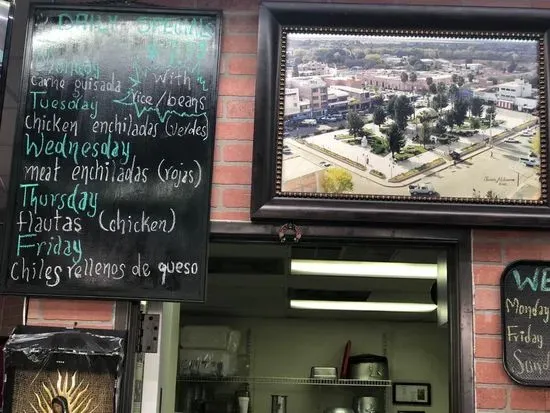 DAILY SPECIALS
Monday
carne guisada with
Tuesday rice/beans
chicken enchiladas (verdes)
Wednesday
meat enchiladas (rojas)
Thursday
flautas (chicken)
Friday
Chiles rellenos de queso
WE
Monday
Friday